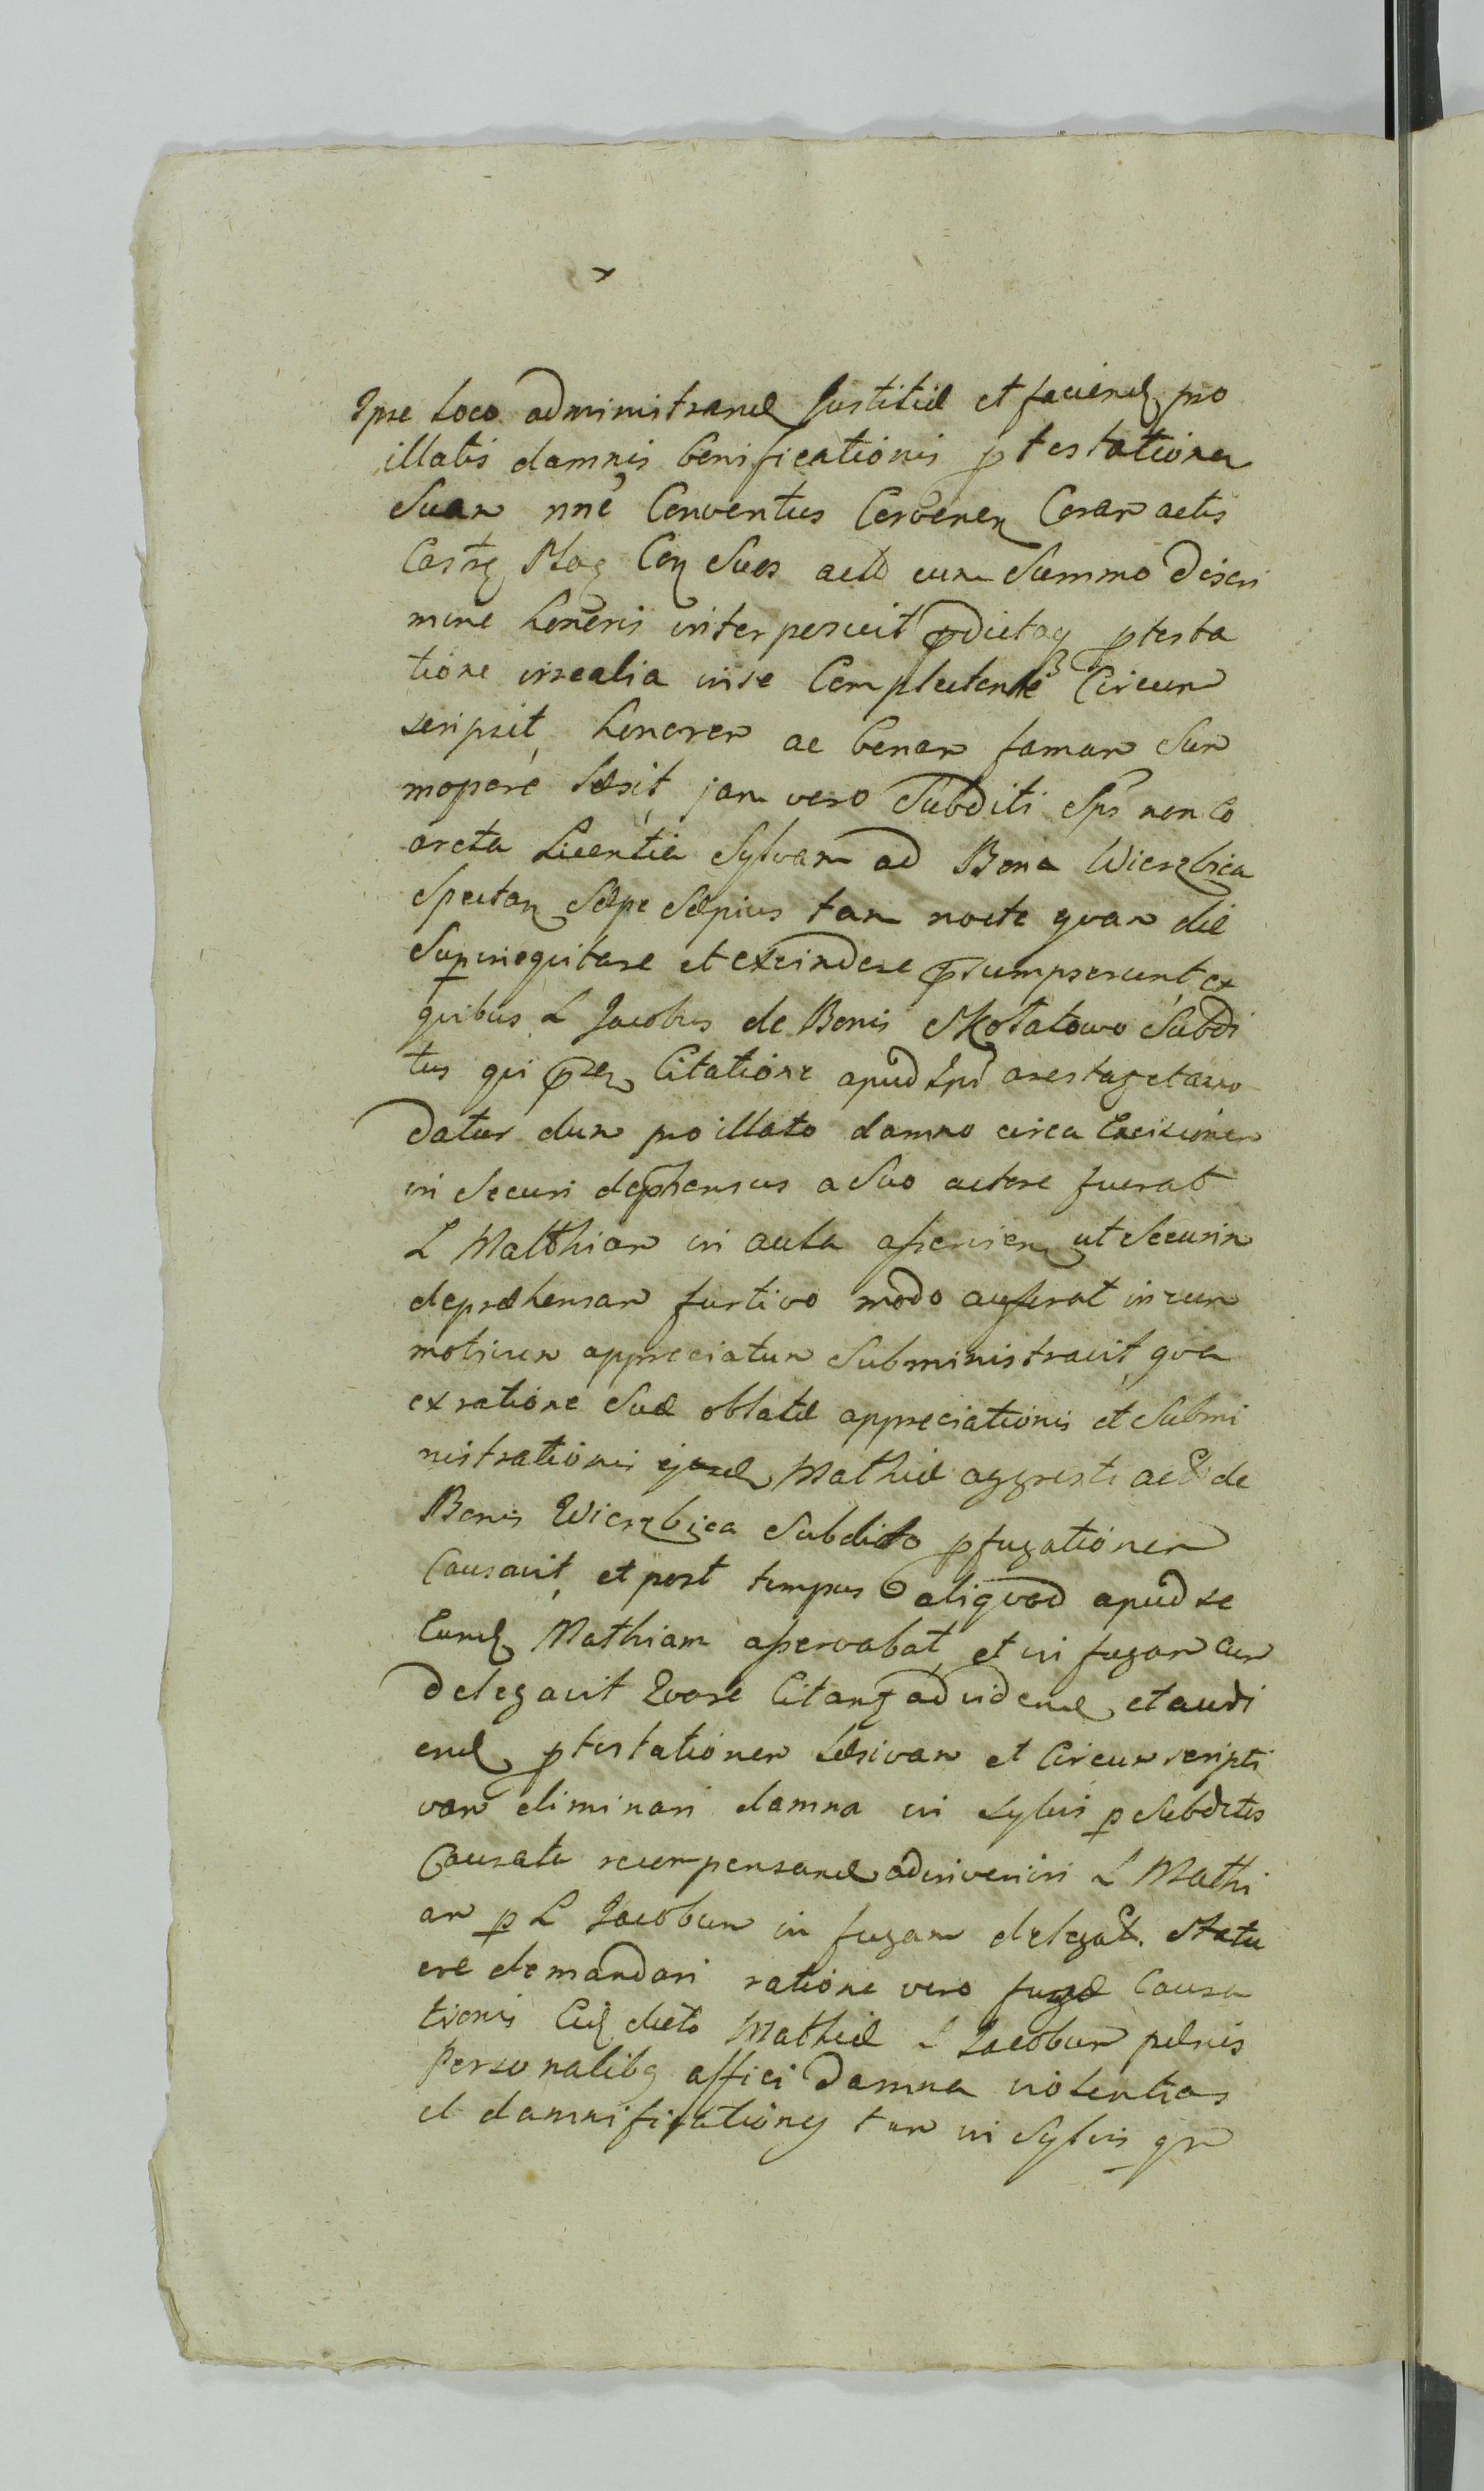 Ipse loco administrand Justitiæ et faciend pro
illatis damnis bonificationis ptestationem
Suam nne Conventus Cervenen Coram actis
Castr Plog Con Suos actt cum Summo discri
mine honoris interposuit pdictaq ptesta
tione irrealia in se Complectente Circum
scripsit, honorem ac bonam famam Sum
mopere læsit, jam vero Subditi Sps non co
arcta Licentia Sylvam ad Bona Wierzbica
Spectan Sæpe Sæpius tam nocte quam die
Superinequitare et excindere psumpserunt, ex
quibus L Jacobus de Bonis Skołatowo Subdi
tus qui pn
 Citatione apud
datur dum pro illato damno circa Excisionem
in Securi dephensus a Suo actore fuerat
L Matthiam in aula asservien ut Securim
depræhensam furtivo modo auferat in eum
motivum appreciatum Subministravit, qua
ex ratione Suæ oblatæ appreciationis et Submi
nistrationis ejusd Mathiæ aggresti actt de
Bonis Wierzbica Subdito pfugationem
Causavit, et post tempus aliquod apud se
Eund Mathiam asservabat, et in fugam eum
delegavit Quare Citantq ad vidend et audi
end ptestationem læsivam et Circumscripti
vam eliminari damna in sylvis p Subditos
Causata recompensand adinveniri L Mathi
am p L Jacobum in fugam delegat. Statu
ere demandari ratione vero fugæ Causa
tionis Eid dicto Mathiæ L Jacobum pænis
personalibq affici Damna violentias
et damnificationes tam in Sylvis qm